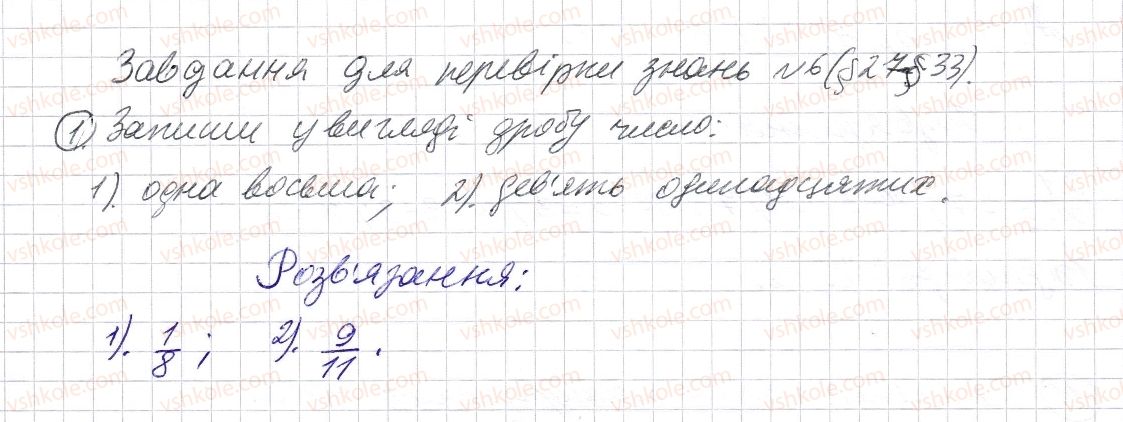 Завдання для перевірки знань №6 (§27-§33).
1). Запиши у вигляді дробу число:
1). одна восьма; 2). дев'ять одинадцятих.
Розв'язання:
1). 1/8 ; 2). 9/11 .